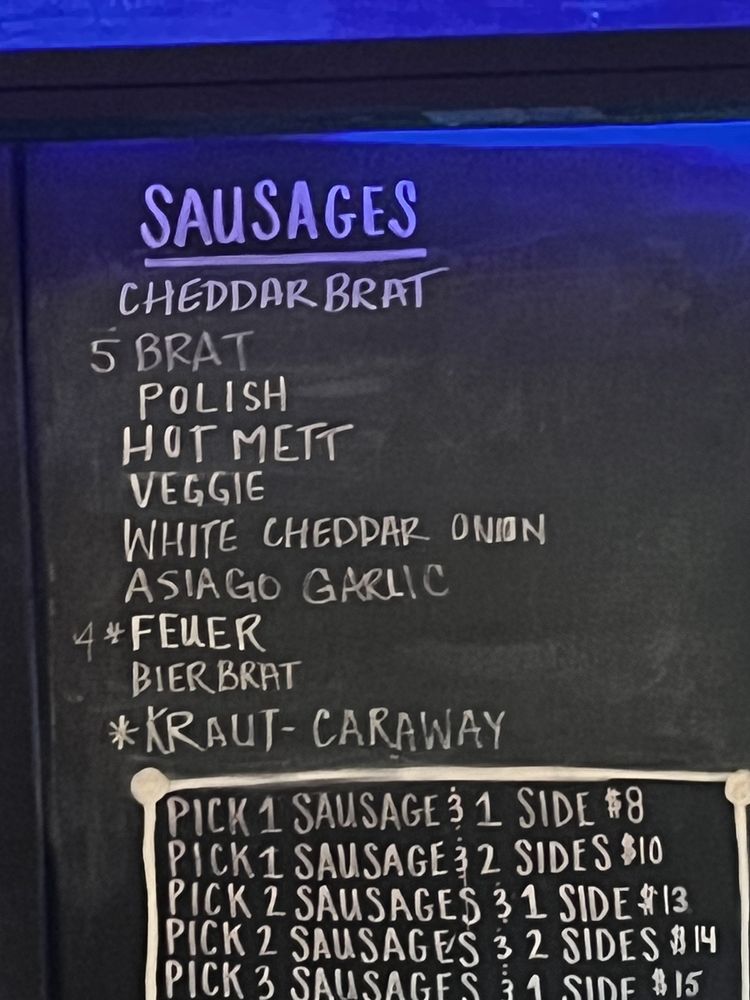 SAUSAGES
CHEDDAR BRAT
5 BRAT
POLISH
HOT METT
VEGGIE
WHITE CHEDDAR ONION
ASIAGO GARLIC
4 * FEUER
BIER BRAT
* KRAUT- CARAWAY
PICK 1 SAUSAGE & 1 SIDE $8
PICK 1 SAUSAGE & 2 SIDES $10
PICK 2 SAUSAGES & 1 SIDE $13
PICK 2 SAUSAGES & 2 SIDES $14
PICK 3 SAUSAGES & 1 SIDE $15